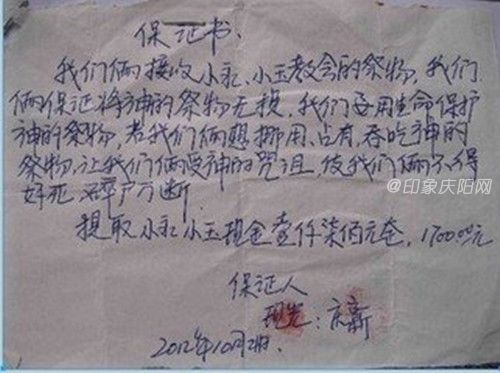 保证书.
我们俩接收小永、小玉教会的祭物,我们
俩保证将神的祭物无损,我们要用生命保护
神的祭物,若我们俩想挪用、占有、吞吃神的
祭物,让我们俩受神的咒诅,使我们俩不得
好死
提取小永小玉现金壹仟柒佰元整,1700.00元
保证人
庆新
2012年10月2
@印象庆阳网